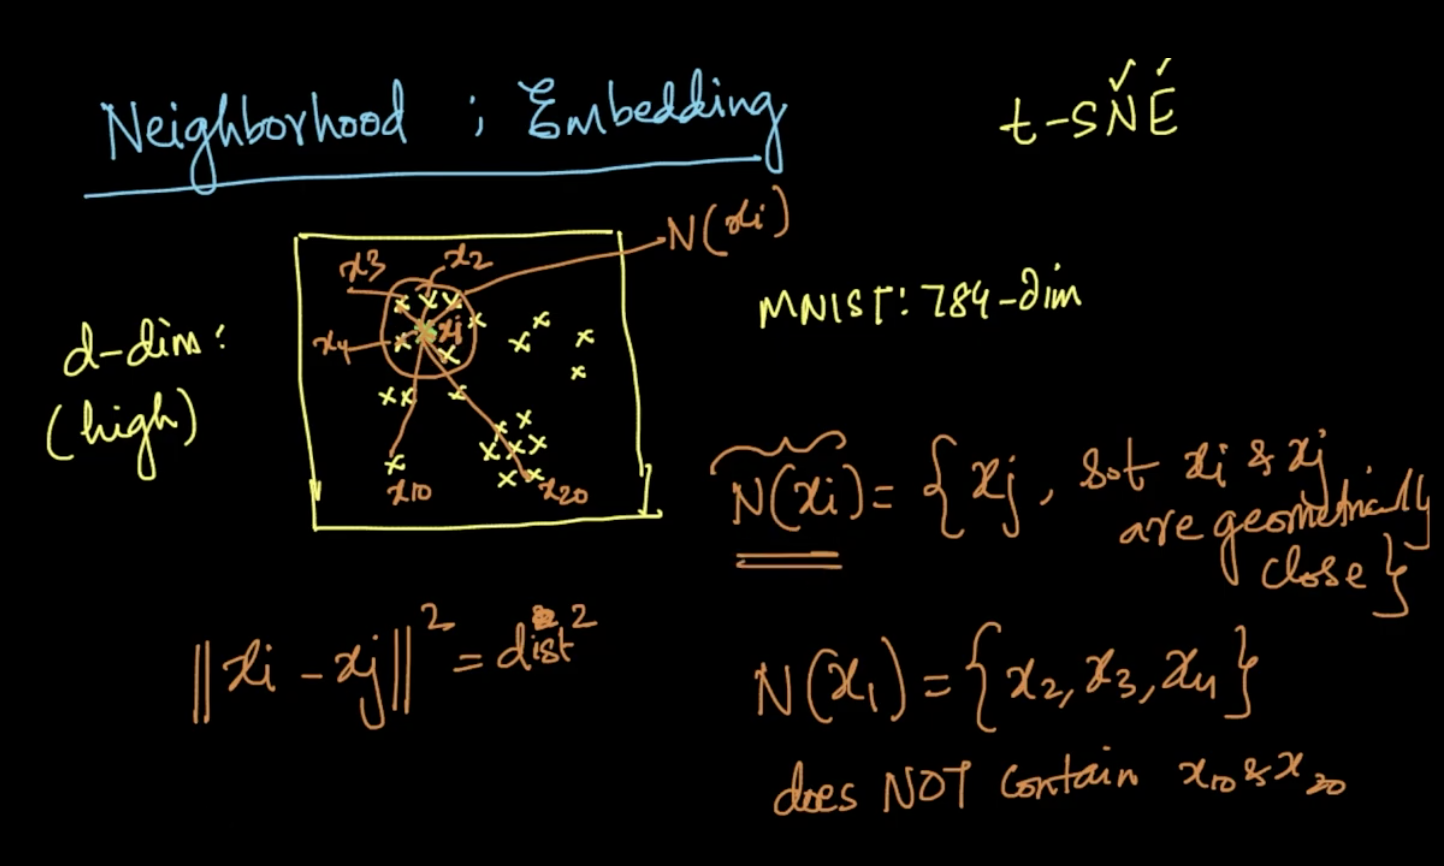 Neighborhood ; Embedding
t-SNE
N(xi)
x3 x2
x4 xj
x10 x20
d-dim:
(high)
MNIST: 784-dim
N(xi) = {xj, s.t xi & xj
are geometrically
close}
||xi - xj||² = dist²
N(x₁) = {x₂, x₃, x₄}
does NOT contain x₁₀ & x₂₀